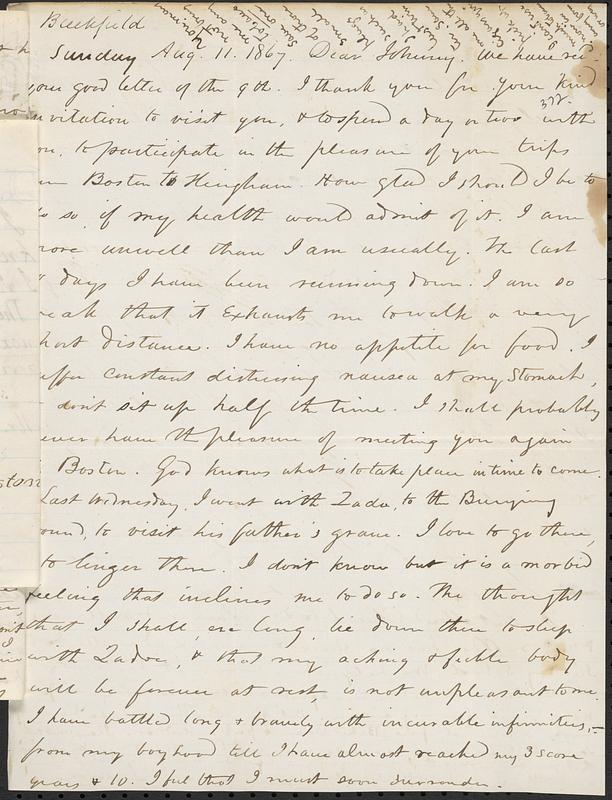 Buckfield
Sunday Aug. 11. 1867. Dear Johnny. We have rec.
your good letter of the 9th. I thank you for your kind
372.
invitation to visit you, & to spend a day or two with
you, to participate in the pleasure of your trips
from Boston to Hingham. How glad I should I be to
do so, if my health would admit of it. I am
more unwell than I am usually. The last
days I have been running down. I am so
weak that it Exhausts me to walk a very
short distance. I have no appetite for food. I
suffer constant distressing nausea at my Stomach,
don't sit up half the time. I shall probably
never have the pleasure of meeting you again
Boston. God knows what is to take place in time to come.
Last Wednesday, I went with Zadoc, to the Burying
ound, to visit his father's grave. I love to go there,
to linger there. I don't know but it is a morbid
feeling that inclines me to do so. The thought
that I shall, ere long, lie down there to sleep
with Zadoc, & that my aching & feeble body
will be forever at rest, is not unpleasant to me.
I have battled long & bravely with incurable infirmities,
from my boyhood till I have almost reached my 3 score
years & 10. I feel that I must soon surrender.
ston